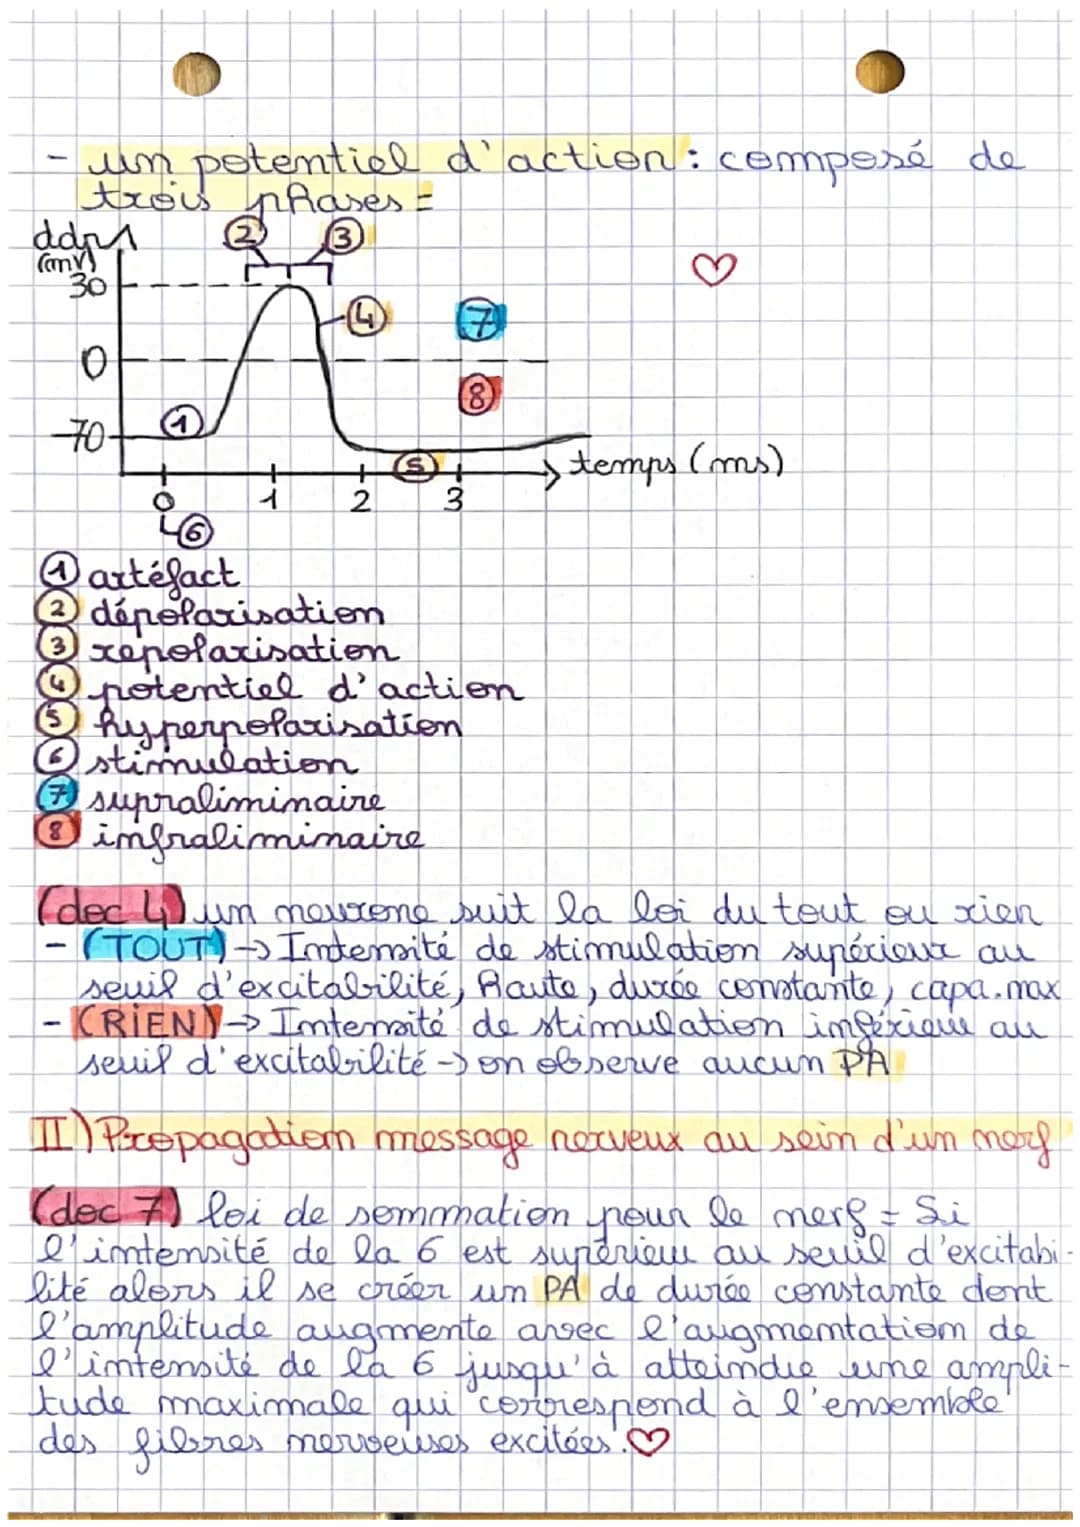 - un potentiel d'action : composé de
trois phases =
ddp
(mV)
2 3
30
4 7
0
8
1
-70
5
temps (ms)
0 1 2 3
6
1 artéfact
2 dépolarisation
3 repolarisation
4 potentiel d'action
5 hyperpolarisation
6 stimulation
7 supraliminaire
8 infraliminaire
(doc 4) un neurone suit la loi du tout ou rien
- (TOUT) → Intensité de stimulation supérieur au
seuil d'excitabilité, Haute, durée constante, capa.max
- (RIEN) → Intensité de stimulation inférieur au
seuil d'excitabilité → on observe aucun PA
II) Propagation message nerveux au sein d'un nerf
(doc 7) loi de sommation pour le nerf = Si
l'intensité de la 6 est supérieur au seuil d'excitabi-
lité alors il se créer un PA de durée constante dont
l'amplitude augmente avec l'augmentation de
l'intensité de la 6 jusqu'à atteindre une ampli-
tude maximale qui correspond à l'ensemble
des fibres nerveuses excitées.